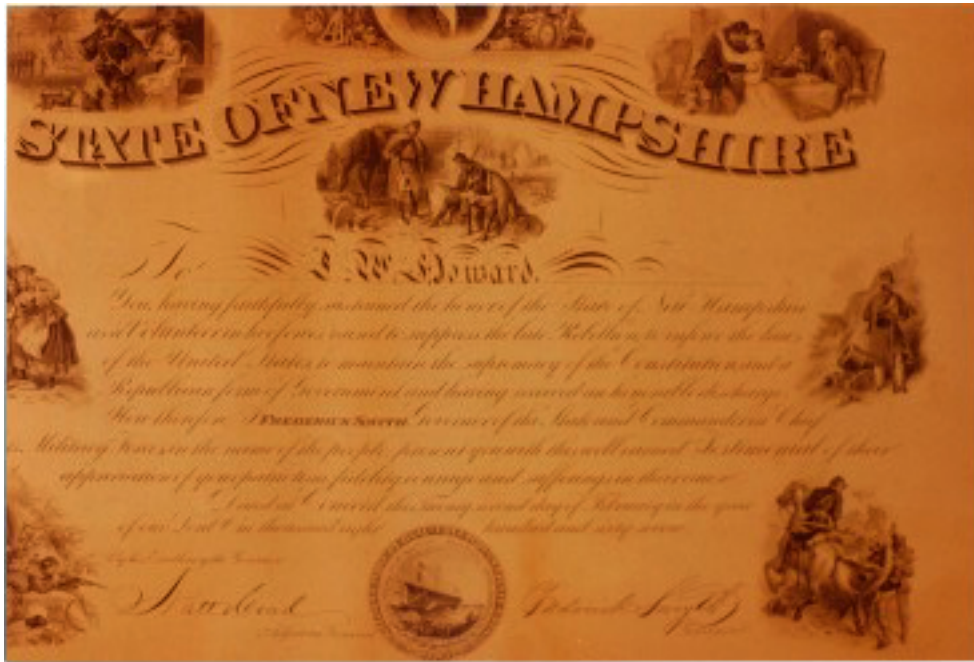 STATE OF NEW HAMPSHIRE
To
J. W. Howard.
You, having faithfully sustained the honor of the State of New Hampshire
as a Volunteer in her forces raised to suppress the late Rebellion, to enforce the laws
of the United States to maintain the supremacy of the Constitution and a
Republican form of Government and having received an honorable discharge
Now therefore I FREDERICK SMYTH Governor of the State and Commander in Chief
Military Forces in the name of the people present you with this well earned Testimonial of their
appreciation of your patriotism fidelity courage and sufferings in their cause
Dated at Concord this twenty second day of February in the year
of our Lord One thousand eight hundred and sixty seven
Natt Head
Frederick Smyth